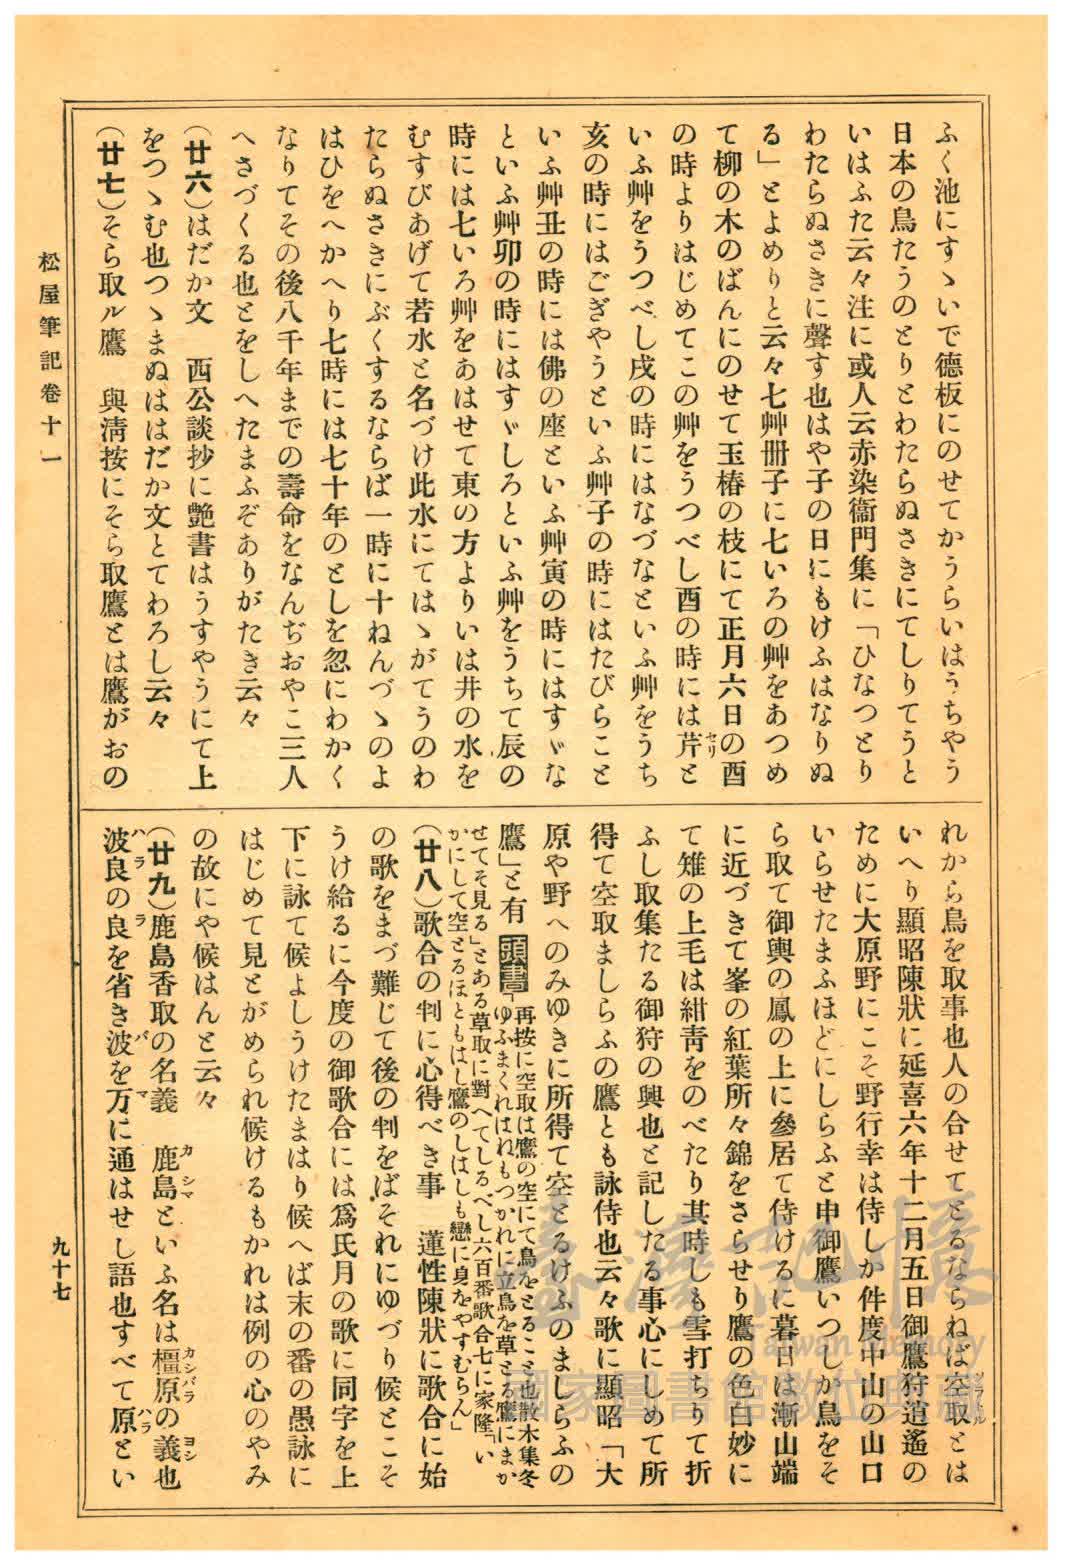 ふく池にすゝいで德板にのせてかうらいはうちやう
日本の鳥たうのとりとわたらぬさきにてしりてうと
いはふた云々注に或人云赤染衞門集に「ひなつとり
わたらぬさきに聲す也はや子の日にもけふはなりぬ
る」とよめりと云々七艸册子に七いろの艸をあつめ
て柳の木のばんにのせて玉椿の枝にて正月六日の酉
の時よりはじめてこの艸をうつべし酉の時には芹セリと
いふ艸をうつべし戌の時にはなづなといふ艸をうち
亥の時にはごぎやうといふ艸子の時にはたびらこと
いふ艸丑の時には佛の座といふ艸寅の時にはすゞな
といふ艸卯の時にはすゞしろといふ艸をうちて辰の
時には七いろ艸をあはせて東の方よりいは井の水を
むすびあげて若水と名づけ此水にてはゝがてうのわ
たらぬさきにぶくするならば一時に十ねんづゝのよ
はひをへかへり七時には七十年のとしを忽にわかく
なりてその後八千年までの壽命をなんぢおやこ三人
へさづくる也とをしへたまふぞありがたき云々
(廿六)はだか文　西公談抄に艶書はうすやうにて上
をつゝむ也つゝまぬははだか文とてわろし云々
(廿七)そら取ル鷹　與淸按にそら取鷹とは鷹がおの
れから鳥を取事也人の合せてとるならねば空取ソラトルとは
いへり顯昭陳狀に延喜六年十二月五日御鷹狩逍遙の
ために大原野にこそ野行幸は侍しか件度中山の山口
いらせたまふほどにしらふと申御鷹いつしか鳥をそ
ら取て御輿の鳳の上に參居て侍けるに暮日は漸山端
に近づきて峯の紅葉所々錦をさらせり鷹の色白妙に
て雉の上毛は紺靑をのべたり其時しも雪打ちりて折
ふし取集たる御狩の興也と記したる事心にしめて所
得て空取ましらふの鷹とも詠侍也云々歌に顯昭「大
原や野へのみゆきに所得て空とるけふのましらふの
鷹」と有 頭書 再按に空取は鷹の空にて鳥をとること也散木集冬
「ゆふまくれはれもつかれに立鳥を草とる鷹にまか
せてそ見る」とある草取に對へてしるべし六百番歌合七に家隆「い
かにして空とるほともはし鷹のしはしも戀に身をやすむらん」
(廿八)歌合の判に心得べき事　蓮性陳狀に歌合に始
の歌をまづ難じて後の判をばそれにゆづり候とこそ
うけ給るに今度の御歌合には爲氏月の歌に同字を上
下に詠て候よしうけたまはり候へば末の番の愚詠に
はじめて見とがめられ候けるもかれは例の心のやみ
の故にや候はんと云々
(廿九)鹿島香取の名義　鹿島カシマといふ名は橿原カシバラの義ヨシ也
波良ハラの良ラを省き波バを万マに通はせし語也すべて原ハラとい
松屋筆記卷十一
九十七
臺灣記憶
Taiwan Memory
國家圖書館數位典藏